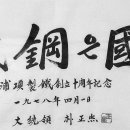 鋼은國
浦項製鐵創立十周年記念
一九七八年四月一日
大統領 朴正熙